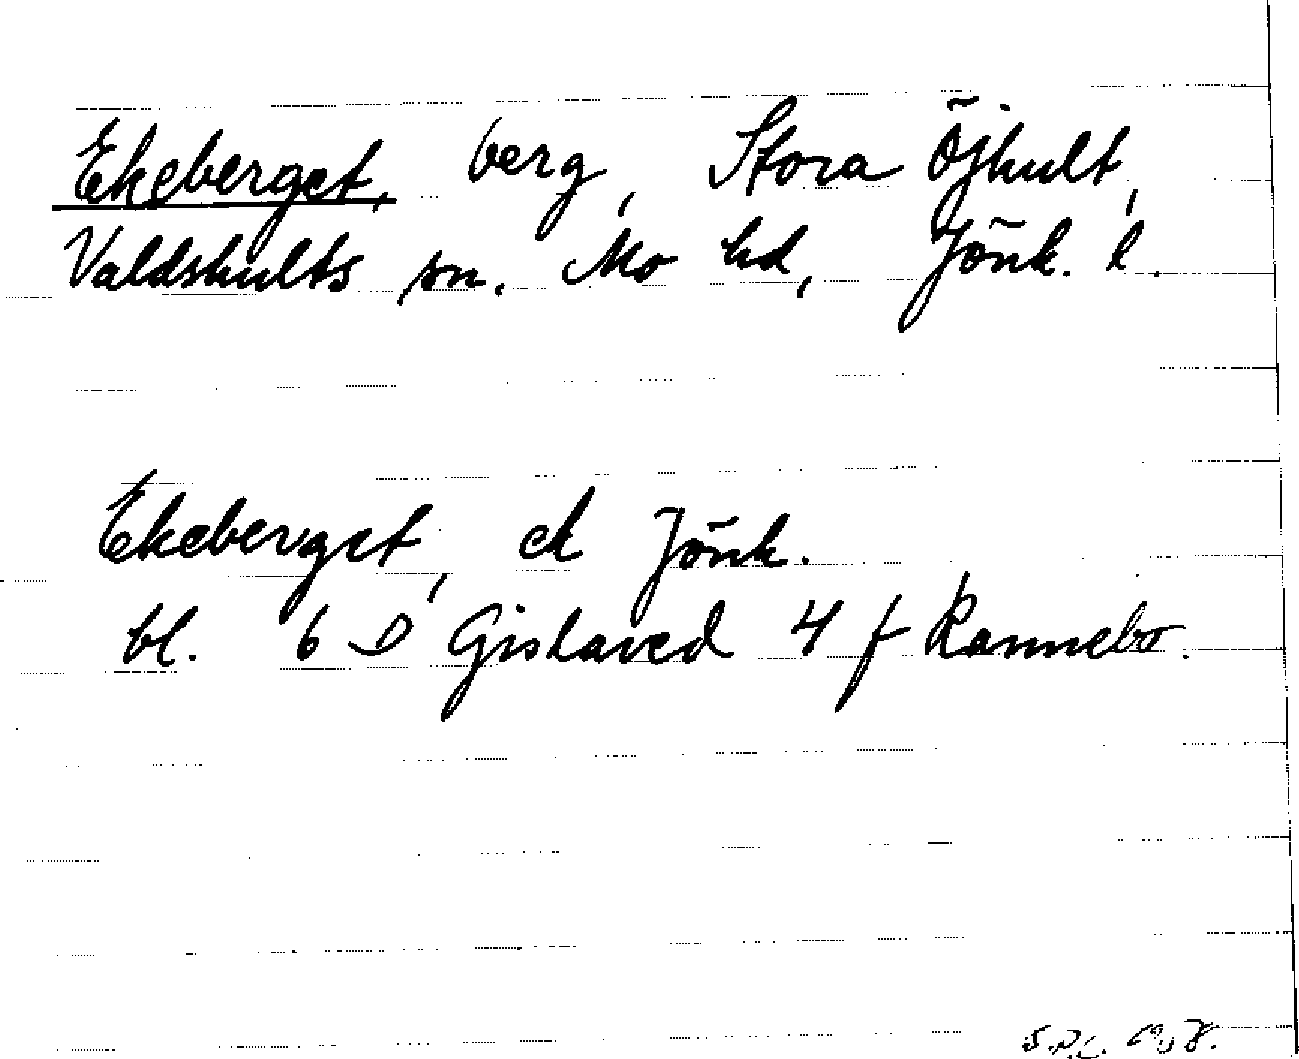 Ekeberget, berg, Stora Öjhult,
Valdshults sn. Mo hd, Jönk. l.
Ekeberget, ek Jönk.
bl. 6 D Gislaved 4 f Rannebo.